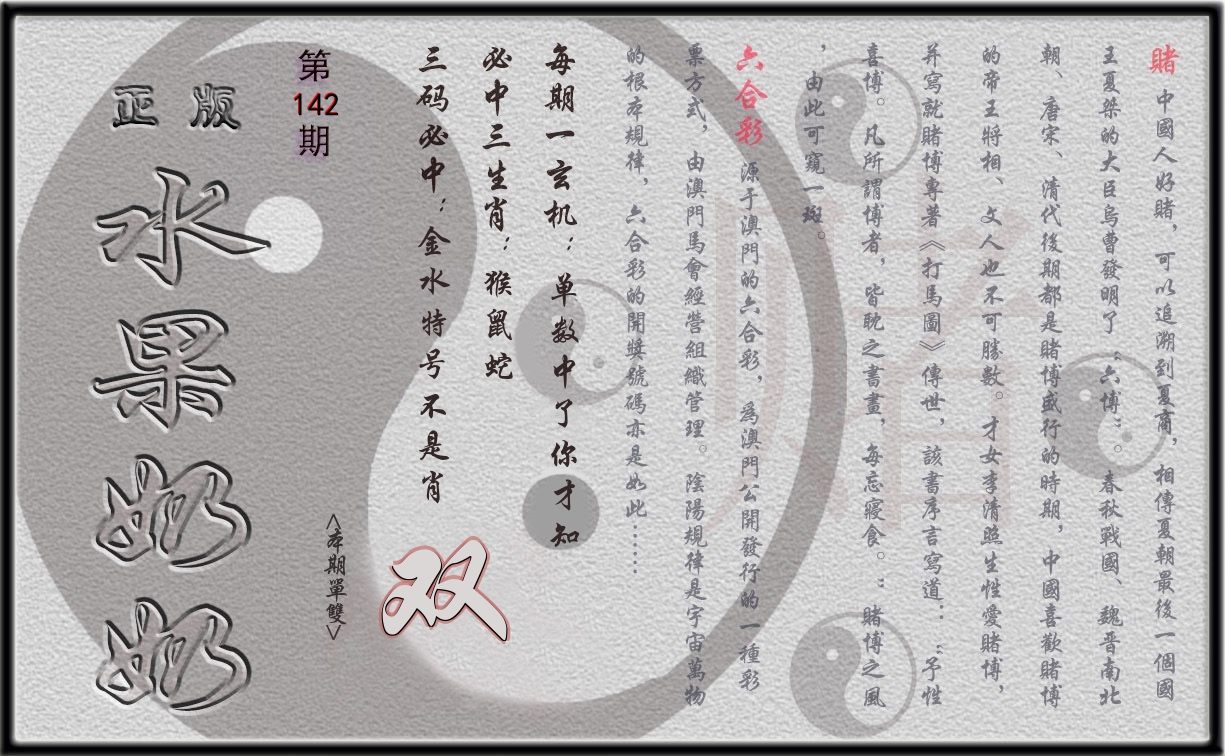 賭 中國人好賭，可以追溯到夏商，相傳夏朝最後一個國
王夏桀的大臣烏曹發明了“六博”。春秋戰國、魏晋南北
朝、唐宋、清代後期都是賭博盛行的時期，中國喜歡賭博
的帝王將相、文人也不可勝數。才女李清照生性愛賭博，
并寫就賭博專著《打馬圖》傳世，該書序言寫道：“予性
喜博。凡所謂博者，皆耽之書晝，每忘寢食。”賭博之風
，由此可窺一斑。
六合彩 源于澳門的六合彩，為澳門公開發行的一種彩
票方式，由澳門馬會經營組織管理。陰陽規律是宇宙萬物
的根本規律，六合彩的開獎號碼亦是如此……
賭
每期一玄机：单数中了你才知
必中三生肖：猴鼠蛇
三码必中：金水特号不是肖
双
<本期單雙>
第
142
期
正版
水果奶奶